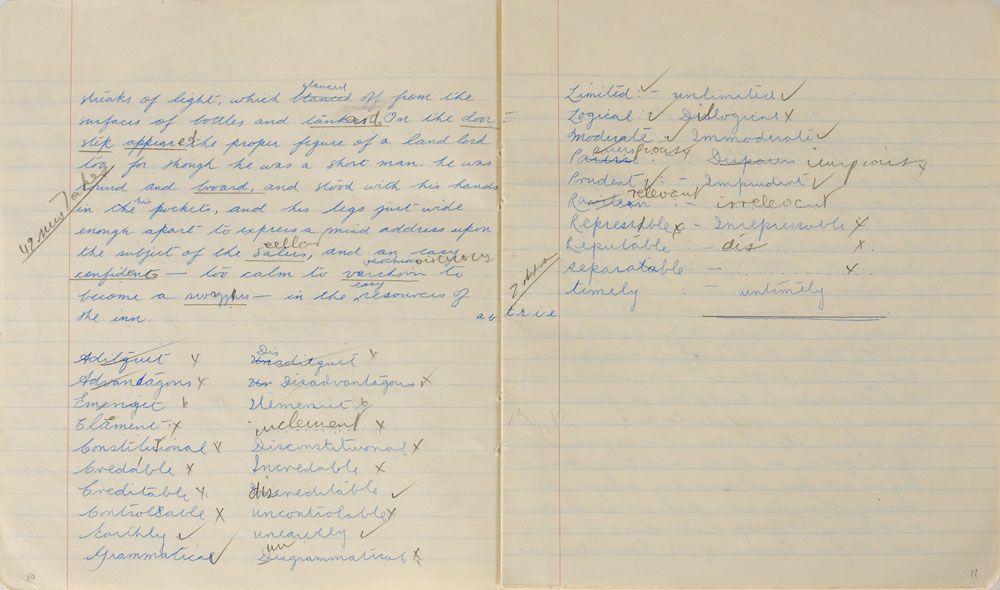 glanced
streaks of light, which blanced off from the
surfaces of bottles and tankard. On the door
step appeared the proper figure of a land lord
too, for though he was a short man. he was
round and board, and stood with his hands
in the his pockets, and his legs just wide
enough apart to express a mind address upon
cellar
the subject of the Salus, and an easy
confidents — too calm to
easy
become a — in the resources of
the inn.
42 mistakes
Aditquit x Dis aditquit x
Advantagons x Un Disadvantagons x
Emengit Unemenict
Clament x inclement x
Constitutional x Disconstituional x
Credable x Incredable x
Creditable x discreditable ✓
Controleable x uncontrolable x
Earthly ✓ uneardly ✓
Grammatical ✓ un Disgrammatical x
10
Limited :- unlimited ✓
Logical :- Disilogical x
Moderate :- Immoderate ✓
Prudent ✓ :- Imprudent ✓
relevant
:- irrelevant
Repressible x - Inrepressable x
Reputable :- dis x
separatable :- x
timely :- untimely
a b t r i e
11